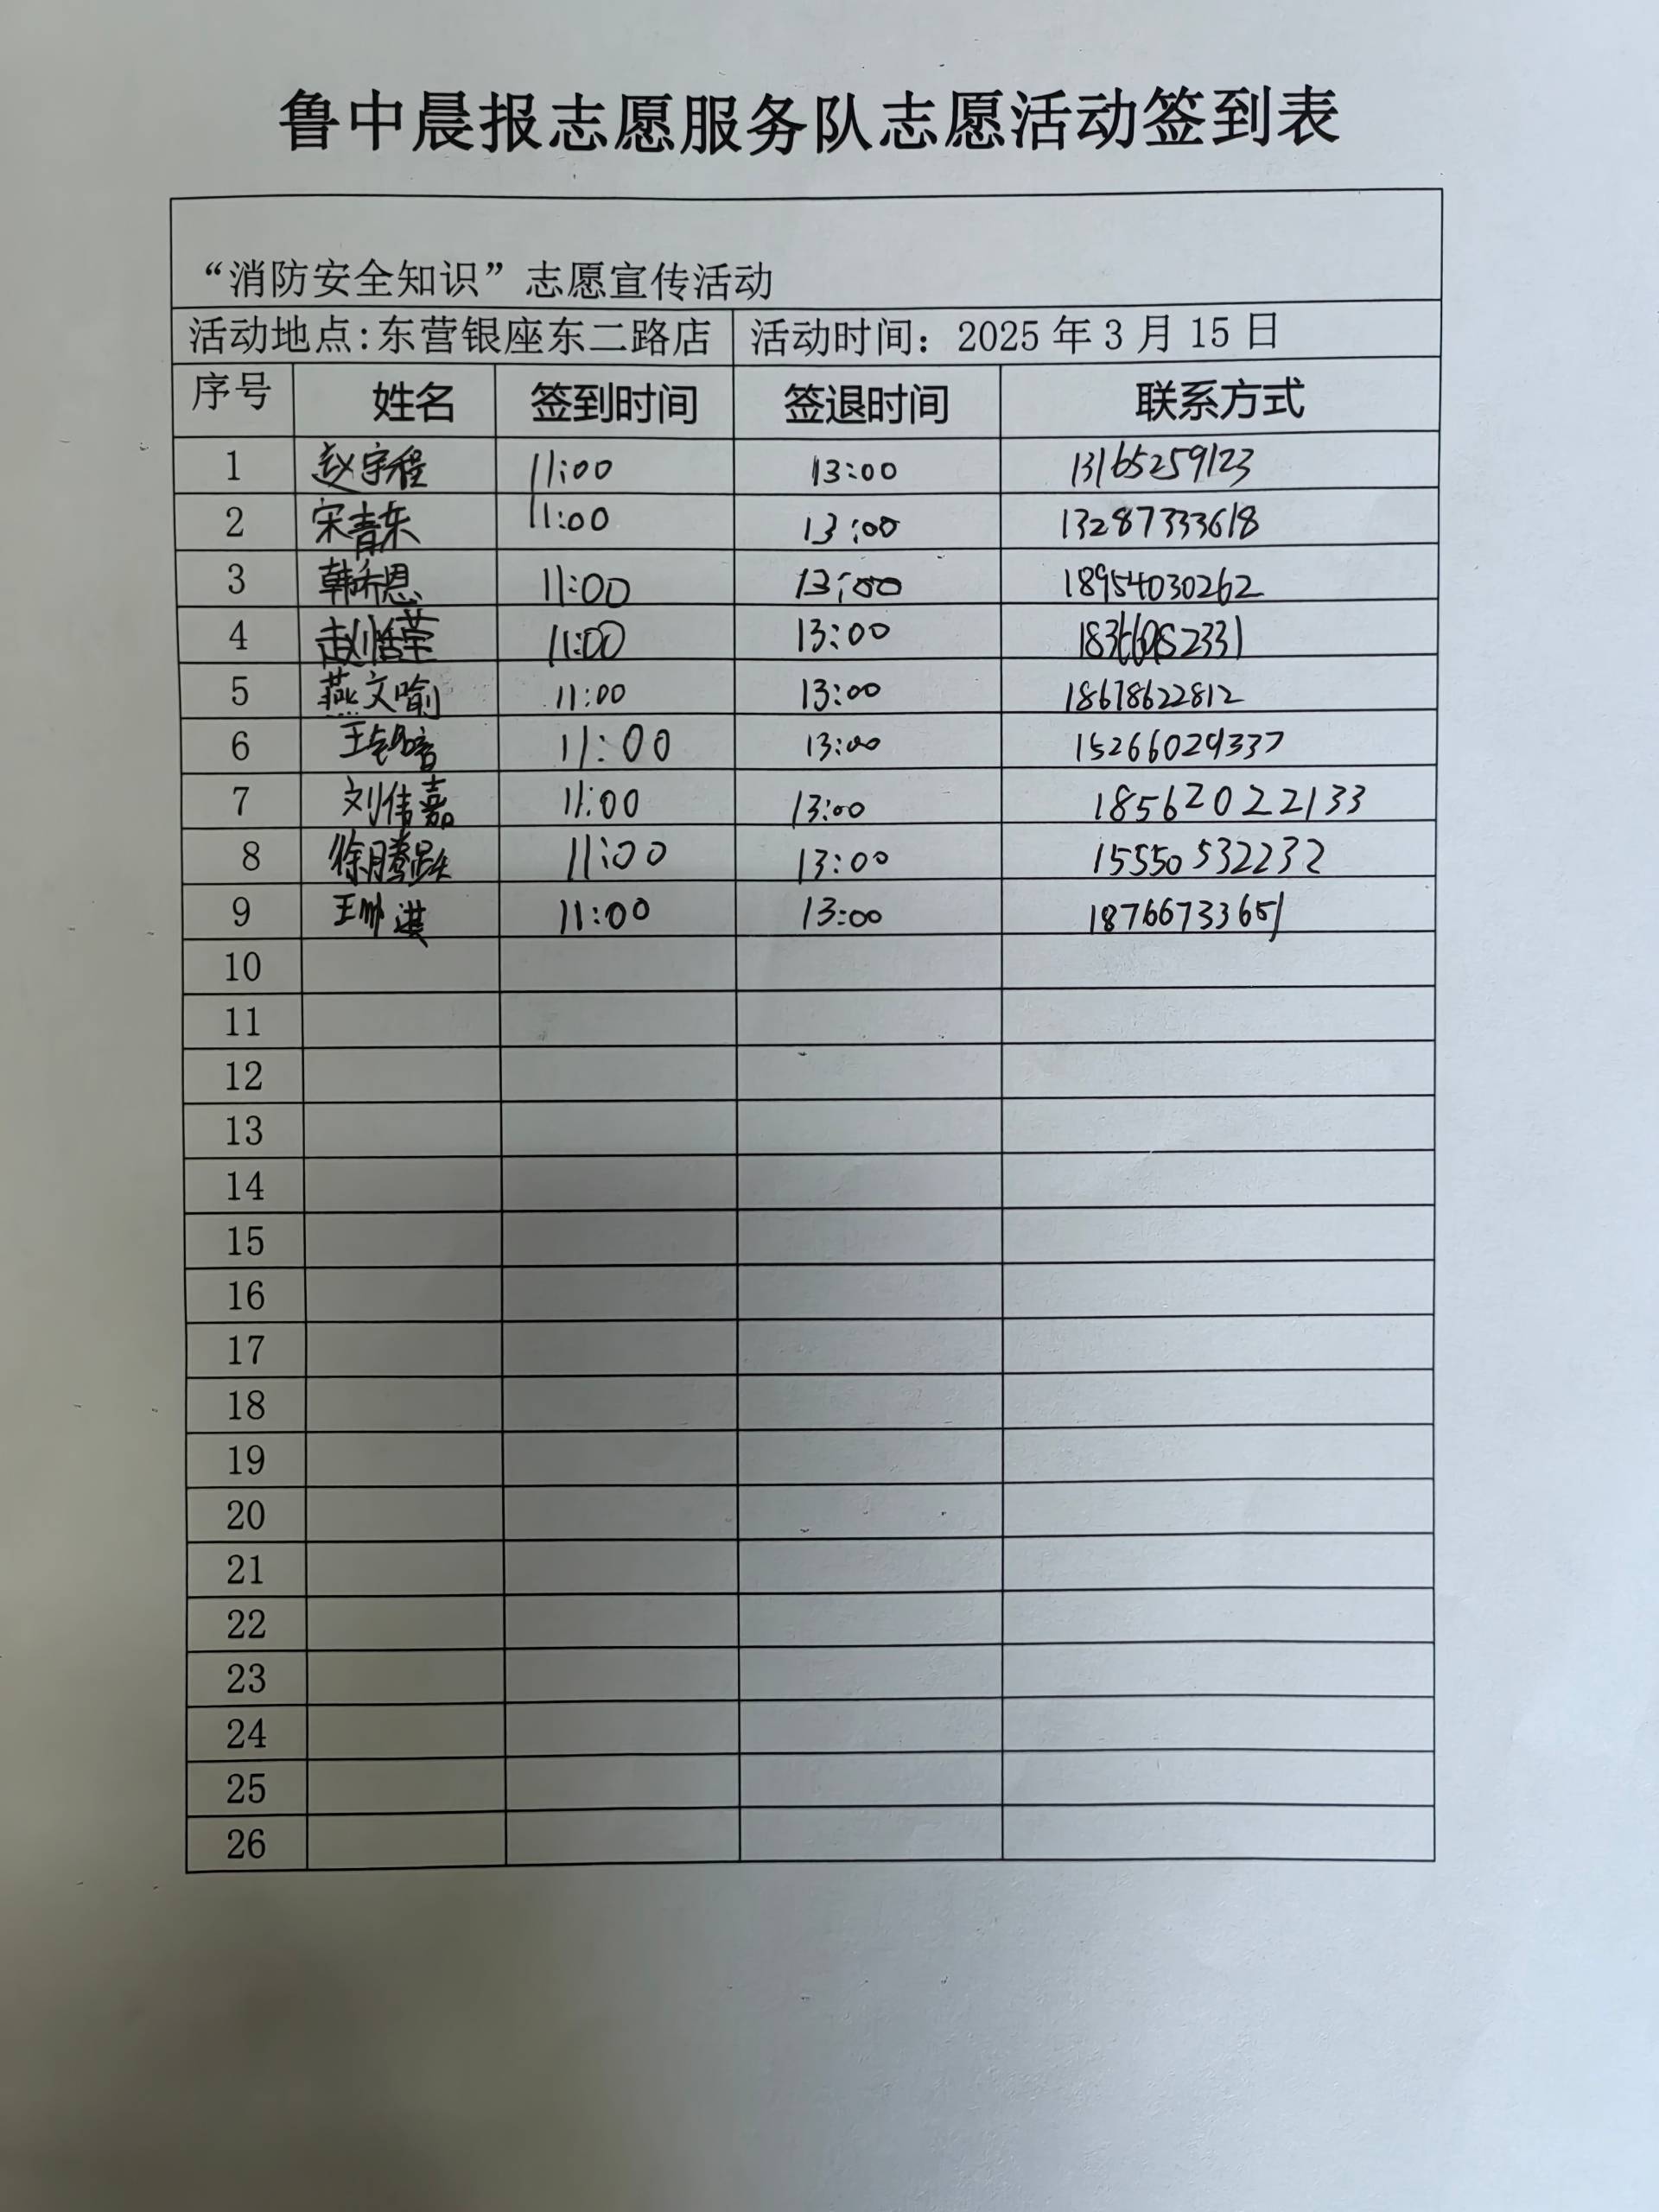 鲁中晨报志愿服务队志愿活动签到表
“消防安全知识”志愿宣传活动
活动地点:东营银座东二路店 活动时间：2025年3月15日
序号 姓名 签到时间 签退时间 联系方式
1 赵宇程 11:00 13:00 13165259123
2 宋青东 11:00 13:00 13287333618
3 韩乔恩 11:00 13:00 18954030262
4 赵恬莹 11:00 13:00
5 燕文喻 11:00 13:00 18678622812
6 11:00 13:00 15266029337
7 刘伟嘉 11:00 13:00 18562022133
8 徐腾跃 11:00 13:00 15550532232
9 11:00 13:00 18766733651
10
11
12
13
14
15
16
17
18
19
20
21
22
23
24
25
26